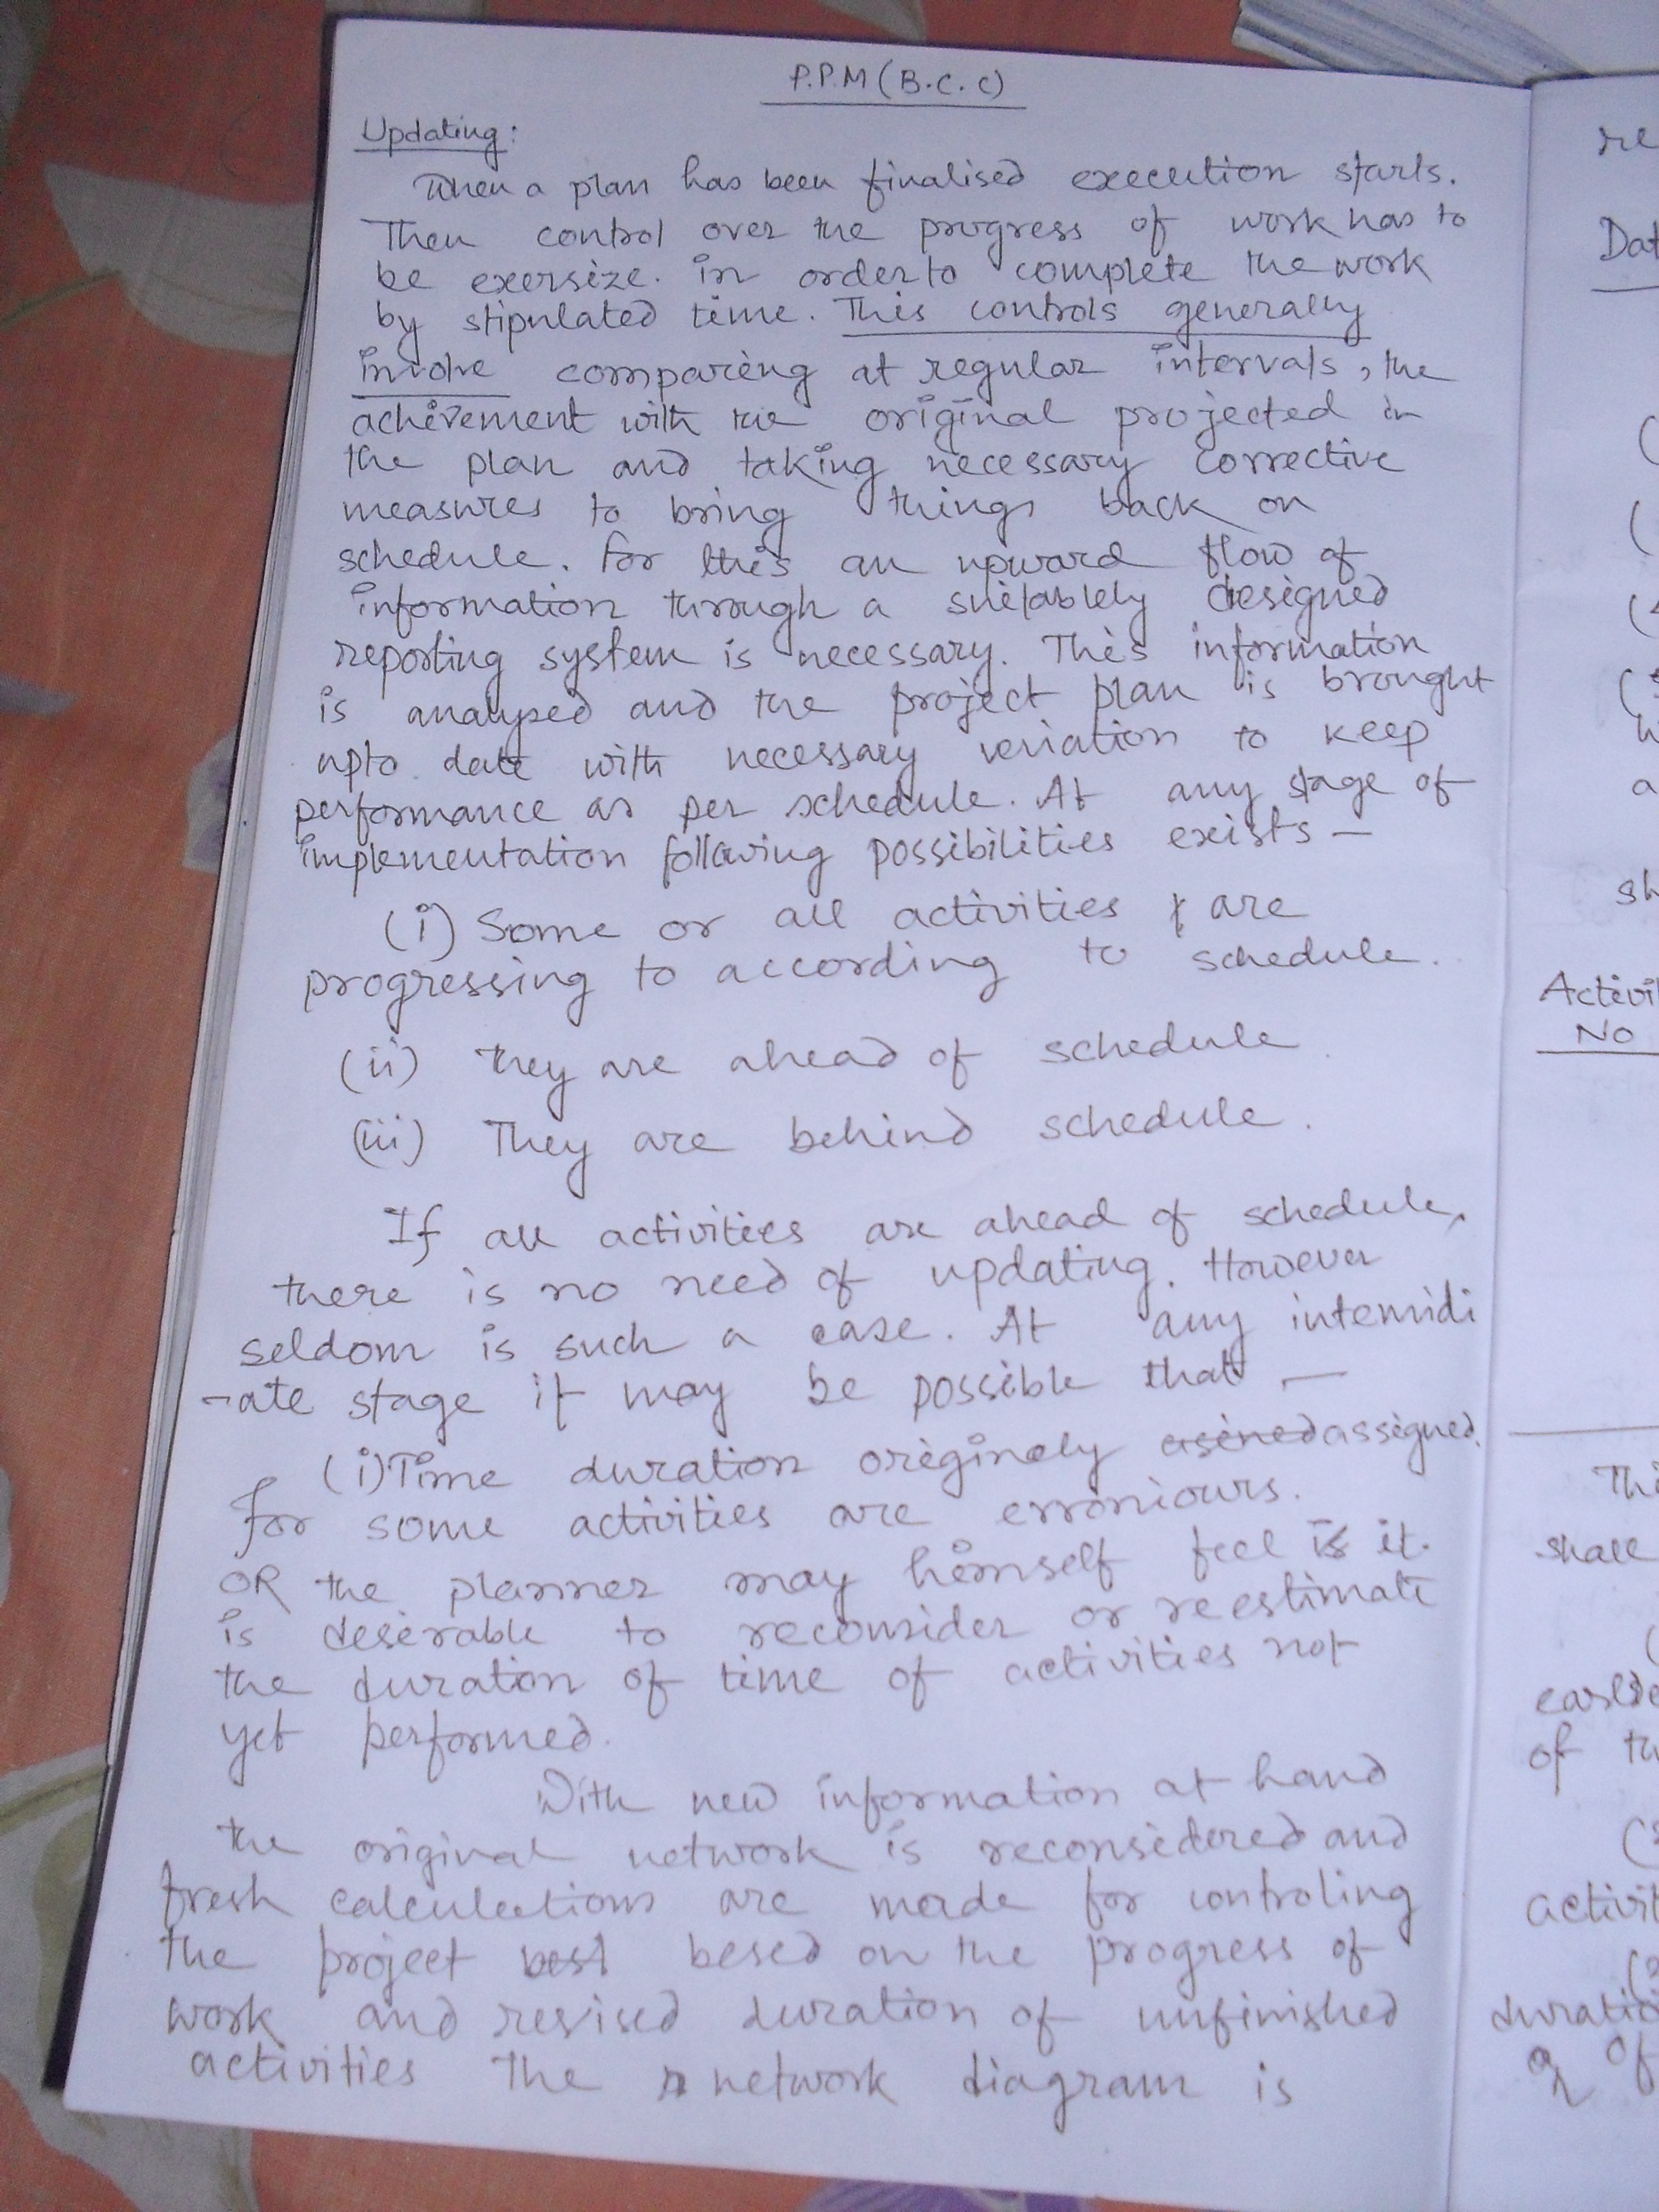 P.P.M (B.C.C)
Updating:
When a plan has been finalised execution starts.
Then control over the progress of work has to
be exersize. in order to complete the work
by stipulated time. This controls generally
involve comparing at regular intervals, the
achivement with the original projected in
the plan and taking necessary corrective
measures to bring things back on
schedule. For this an upward flow of
information through a suitablely designed
reporting system is necessary. This information
is analysed and the project plan is brought
upto date with necessary veriation to keep
performance as per schedule. At any stage of
implementation following possibilities exists —
(i) Some or all activities are
progressing to according to schedule.
(ii) They are ahead of schedule
(iii) They are behind schedule.
If all activities are ahead of schedule,
there is no need of updating. However
seldom is such a case. At any intermidi
-ate stage it may be possible that —
(i) Time duration originaly asined assigned.
for some activities are erroniours.
OR the planner may himself feel is it.
is desirable to reconsider or reestimate
the duration of time of activities not
yet performed.
With new information at hand
the original network is reconsidered and
fresh calculations are made for controling
the project best besed on the progress of
work and revised duration of unfinished
activities the n network diagram is
re
Dat
(
(
(
(
a
sh
Activi
No
Thi
shall
(
earlie
of th
(2
activit
(3
duratio
of